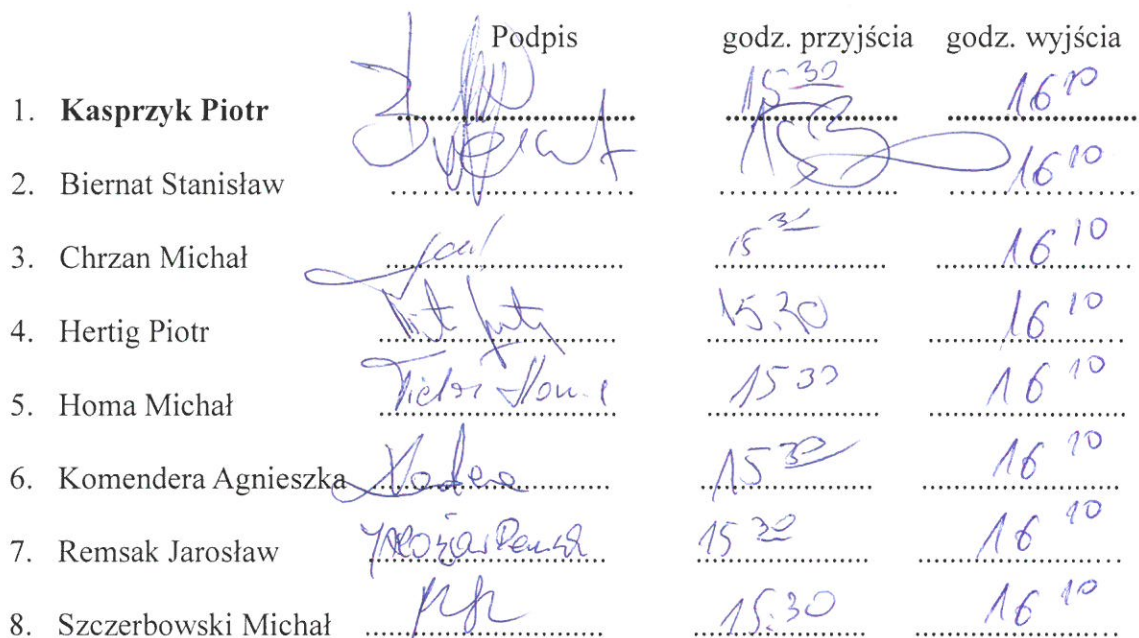 Podpis godz. przyjścia godz. wyjścia
1. Kasprzyk Piotr 15 30 16 10
2. Biernat Stanisław 16 10
3. Chrzan Michał 15 16 10
4. Hertig Piotr 15.30 16 10
5. Homa Michał 15 30 16 10
6. Komendera Agnieszka 15 30 16 10
7. Remsak Jarosław 15 30 16 10
8. Szczerbowski Michał 15.30 16 10